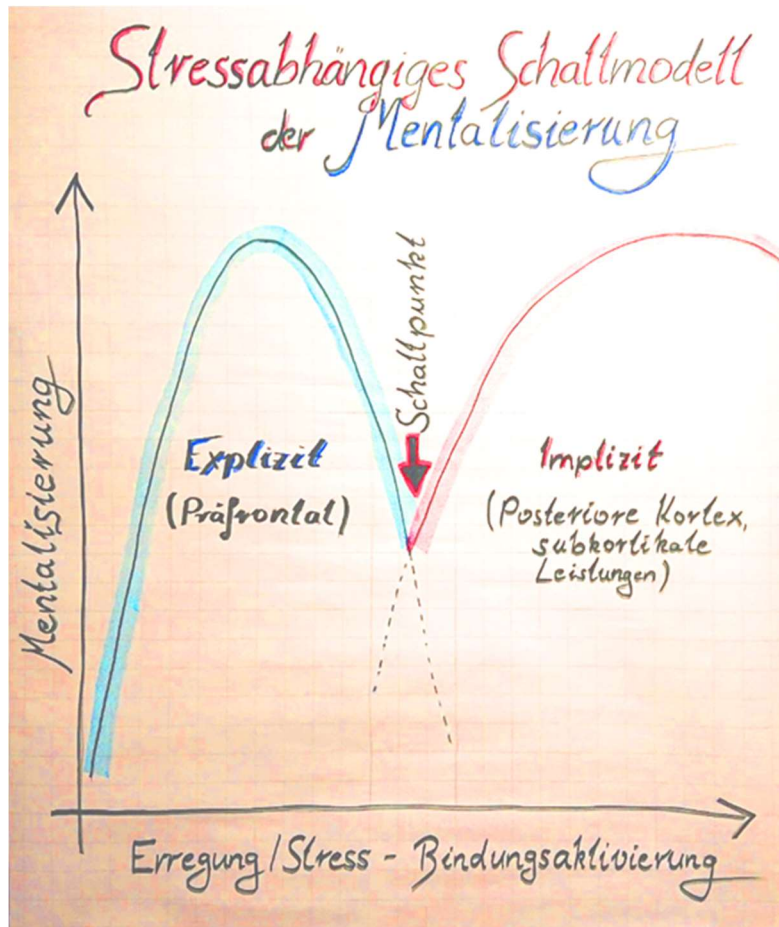 Stressabhängiges Schaltmodell
der Mentalisierung
Mentalisierung
Schaltpunkt
Explizit
(Präfrontal)
Implizit
(Posteriore Kortex,
subkortikale
Leistungen)
Erregung/Stress - Bindungsaktivierung